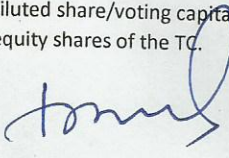 iluted share/voting capita
equity shares of the TC.